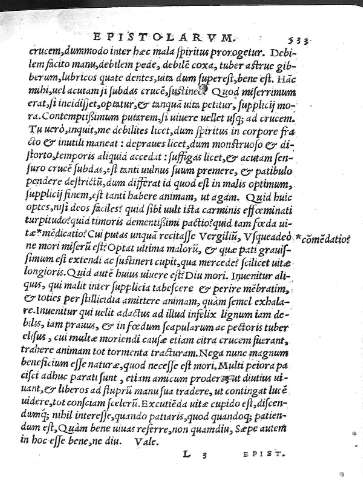 EPISTOLARVM. 533
crucem, dummodo inter hæc mala spiritus prorogetur. Debi-
lem facito manu, debilem pede, debilē coxa, tuber astrue gib-
berum, lubricos quate dentes, uita dum superest, bene est. Hāc
mihi, uel acutam si subdas crucē, sustineo. Quod miserrimum
erat, si incidisset, optatur, & tanquā uita petitur, supplicij mo-
ra. Contemptissimum putarem, si uiuere uellet usq; ad crucem.
Tu uerò, inquit, me debilites licet, dum spiritus in corpore fra
cto & inutili maneat: depraues licet, dum monstruoso & di-
storto, temporis aliquid accedat: suffigas licet, & acutam ses-
suro crucē subdas, est tanti uulnus suum premere, & patibulo
pendere districtū, dum differat id quod est in malis optimum,
supplicij finem, est tanti habere animam, ut agam. Quid huic
optes, nisi deos faciles? quid sibi uult ista carminis effœminati
turpitudo? quid timoris dementissimi pactio? quid tam fœda ui-
tæ *medicatio? Cui putas unquā recitasse Vergiliū, Vsqueadeo *cōmēdatio?
ne mori miserū est? Optat ultima malorū, & quæ pati grauis-
simum est extendi ac sustineri cupit, qua mercede? scilicet uitæ
longioris. Quid autē huius uiuere est? Diu mori. Inuenitur ali-
quis, qui malit inter supplicia tabescere & perire mēbratim,
& toties per stillicidia amittere animam, quàm semel exhala-
re. Inuenitur qui uelit adactus ad illud infelix lignum iam de-
bilis, iam prauus, & in fœdum scapularum ac pectoris tuber
elisus, cui multæ moriendi causæ etiam citra crucem fuerant,
trahere animam tot tormenta tracturam. Nega nunc magnum
beneficium esse naturæ, quod necesse est mori. Multi peiora pa
cisci adhuc parati sunt, etiam amicum prodere, ut diutius ui-
uant, & liberos ad stuprū manu sua tradere, ut contingat lucē
uidere, tot consciam scelerū. Excutiēda uitæ cupido est, discen-
dumq; nihil interesse, quando patiaris, quod quandoq; patien-
dum est, Quàm bene uiuas referre, non quamdiu, Sæpe autem
in hoc esse bene, ne diu. Vale.
L 3 EPIST.